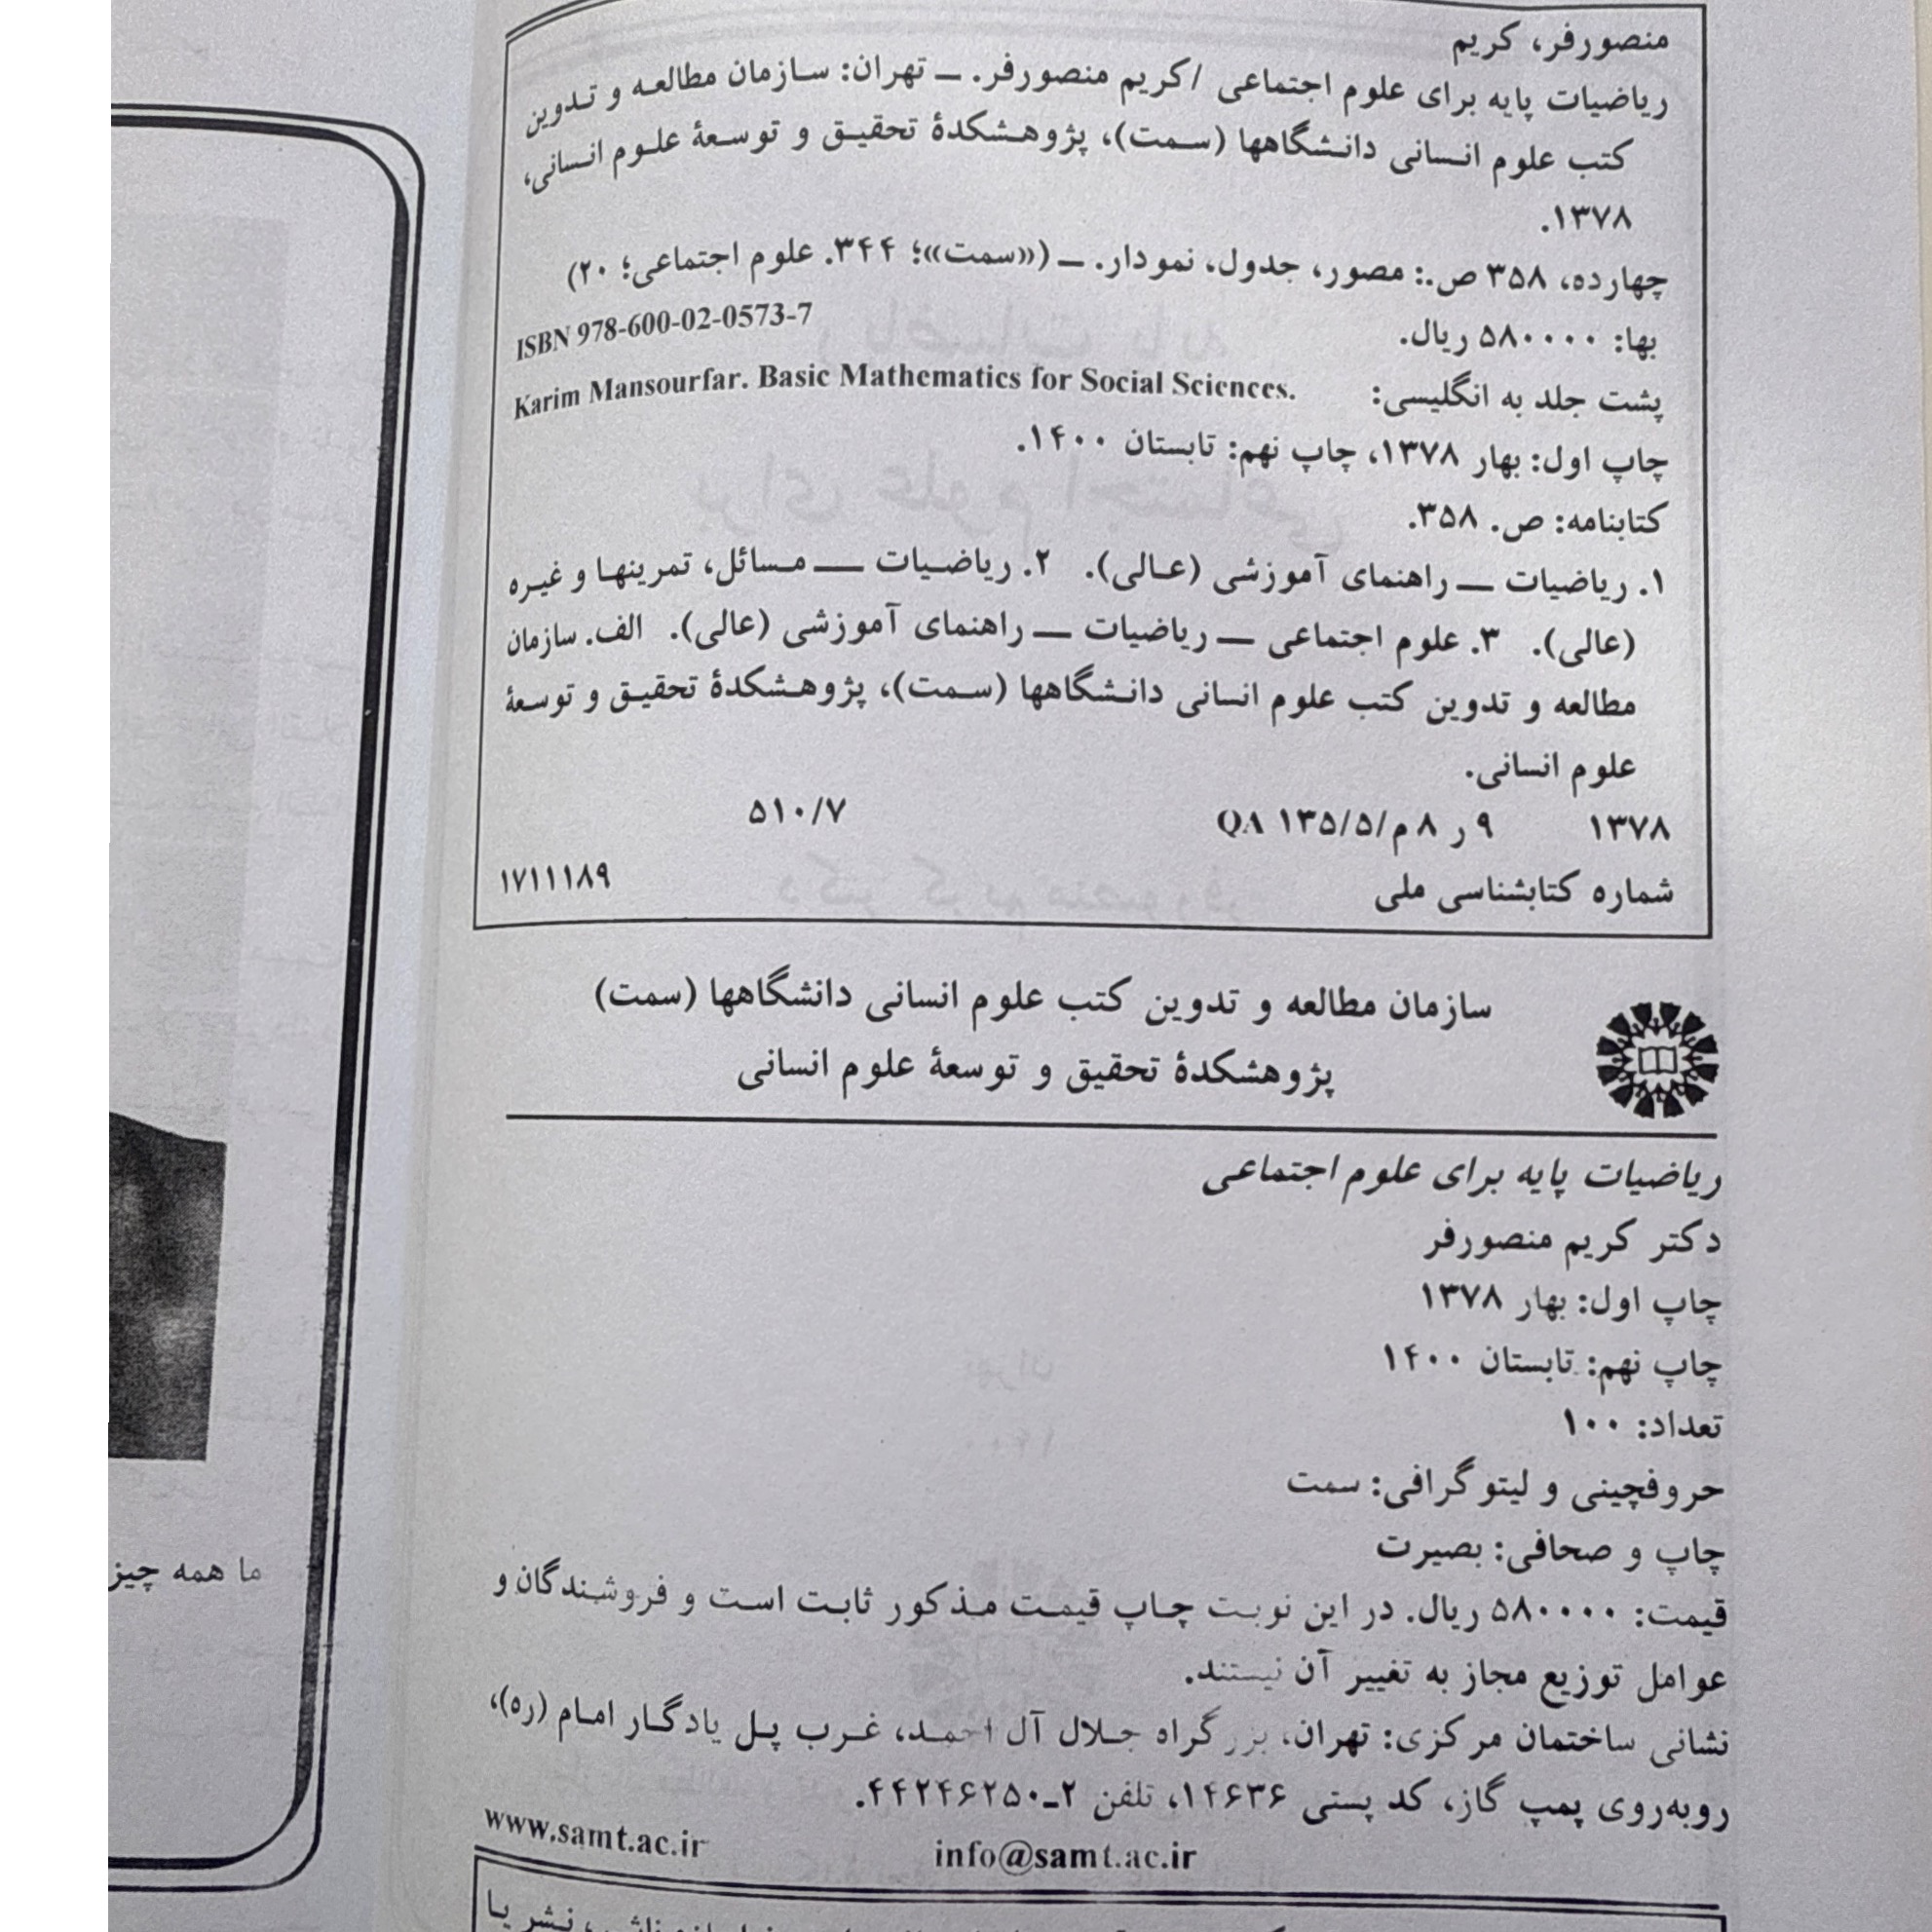 منصورفر، کریم
ریاضیات پایه برای علوم اجتماعی /کریم منصورفر. ـ تهران: سازمان مطالعه و تدوین
کتب علوم انسانی دانشگاهها (سمت)، پژوهشکدۀ تحقیق و توسعۀ علوم انسانی،
۱۳۷۸.
چهارده، ۳۵۸ ص.: مصور، جدول، نمودار. ـ («سمت»؛ ۳۴۴. علوم اجتماعی؛ ۲۰)
بها: ۵۸۰۰۰۰ ریال. ISBN 978-600-02-0573-7
پشت جلد به انگلیسی: Karim Mansourfar. Basic Mathematics for Social Sciences.
چاپ اول: بهار ۱۳۷۸، چاپ نهم: تابستان ۱۴۰۰.
کتابنامه: ص. ۳۵۸.
۱. ریاضیات ـ راهنمای آموزشی (عالی). ۲. ریاضیات ـ مسائل، تمرینها و غیره
(عالی). ۳. علوم اجتماعی ـ ریاضیات ـ راهنمای آموزشی (عالی). الف. سازمان
مطالعه و تدوین کتب علوم انسانی دانشگاهها (سمت)، پژوهشکدۀ تحقیق و توسعۀ
علوم انسانی.
۱۳۷۸ ۹ ر ۸ م/۱۳۵/۵ QA ۵۱۰/۷
شماره کتابشناسی ملی ۱۷۱۱۱۸۹
سازمان مطالعه و تدوین کتب علوم انسانی دانشگاهها (سمت)
پژوهشکدۀ تحقیق و توسعۀ علوم انسانی
ریاضیات پایه برای علوم اجتماعی
دکتر کریم منصورفر
چاپ اول: بهار ۱۳۷۸
چاپ نهم: تابستان ۱۴۰۰
تعداد: ۱۰۰
حروفچینی و لیتوگرافی: سمت
چاپ و صحافی: بصیرت
قیمت: ۵۸۰۰۰۰ ریال. در این نوبت چاپ قیمت مذکور ثابت است و فروشندگان و
عوامل توزیع مجاز به تغییر آن نیستند.
نشانی ساختمان مرکزی: تهران، بزرگراه جلال آل احمد، غرب پل یادگار امام (ره)،
روبه‌روی پمپ گاز، کد پستی ۱۴۶۳۶، تلفن ۲ـ۴۴۲۴۶۲۵۰.
www.samt.ac.ir info@samt.ac.ir
نشر یا
ما همه چیز